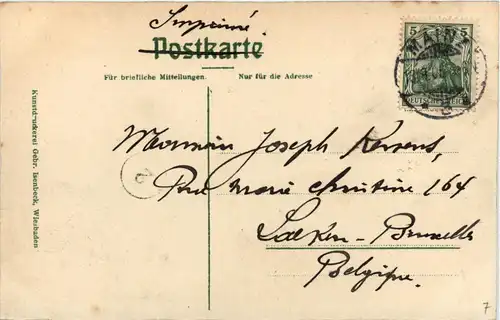 Imprimé
Postkarte
Für briefliche Mitteilungen.
Nur für die Adresse
5 5
MAINZ
DEUTSCHES REICH
Joseph
Rue Marie Christine 164
Laeken - Bruxelles
Belgique.
Kunstdruckerei Gebr. Isenbeck, Wiesbaden
2
7